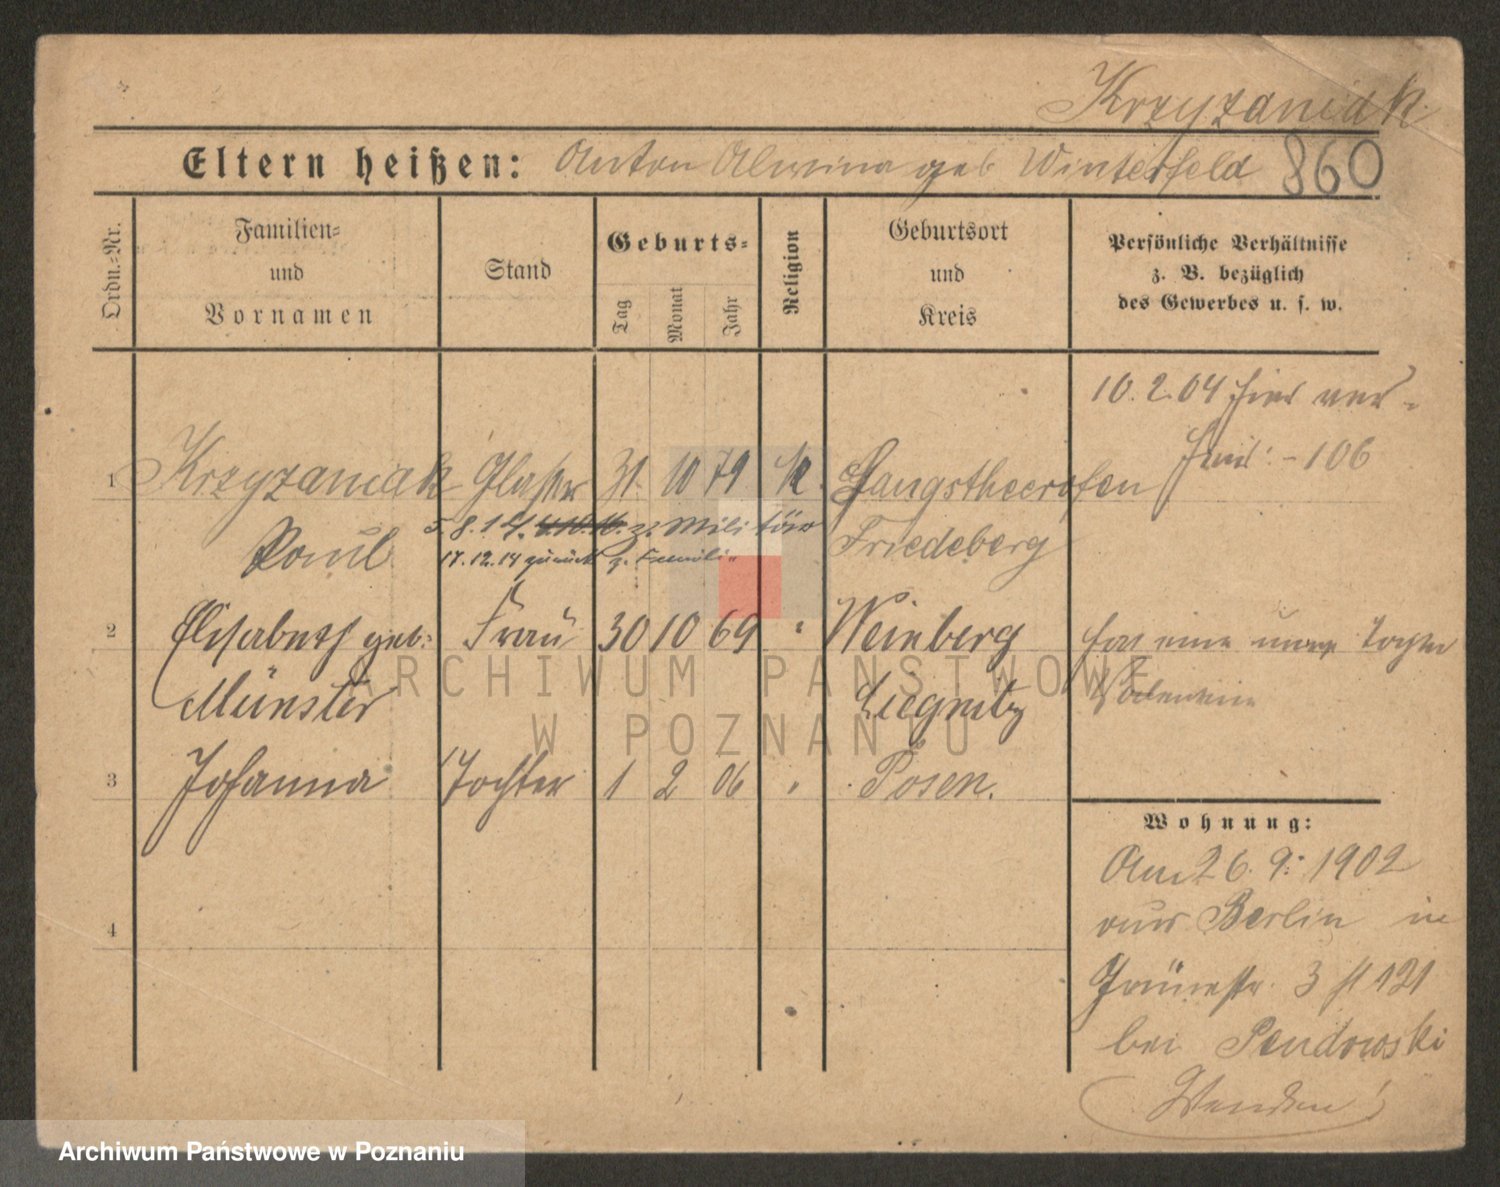 Krzyzaniak
Eltern heißen: Anton Alwina geb Winterfeld 860
Ordn.-Nr.
Familien-
und
Vornamen
Stand
Geburts-
Tag
Monat
Jahr
Religion
Geburtsort
und
Kreis
Persönliche Verhältnisse
z. B. bezüglich
des Gewerbes u. s. w.
10. 2. 04 hier ver-
- 106
1 Krzyzaniak Glaser 31 10 79 K.
Paul
5.8.14. z. Militär
17.12.14 zurück z. Famili
Friedeberg
2 Elisabeth geb. Frau 30 10 69 " Weinberg
Münster Liegnitz
hat eine Tochter
3 Johanna Tochter 1 2 06 " Posen.
4
Wohnung:
Am 26. 9. 1902
aus Berlin in
Grünestr. 3 II 121
bei Pendowski
ARCHIWUM PAŃSTWOWE
W POZNANIU
Archiwum Państwowe w Poznaniu